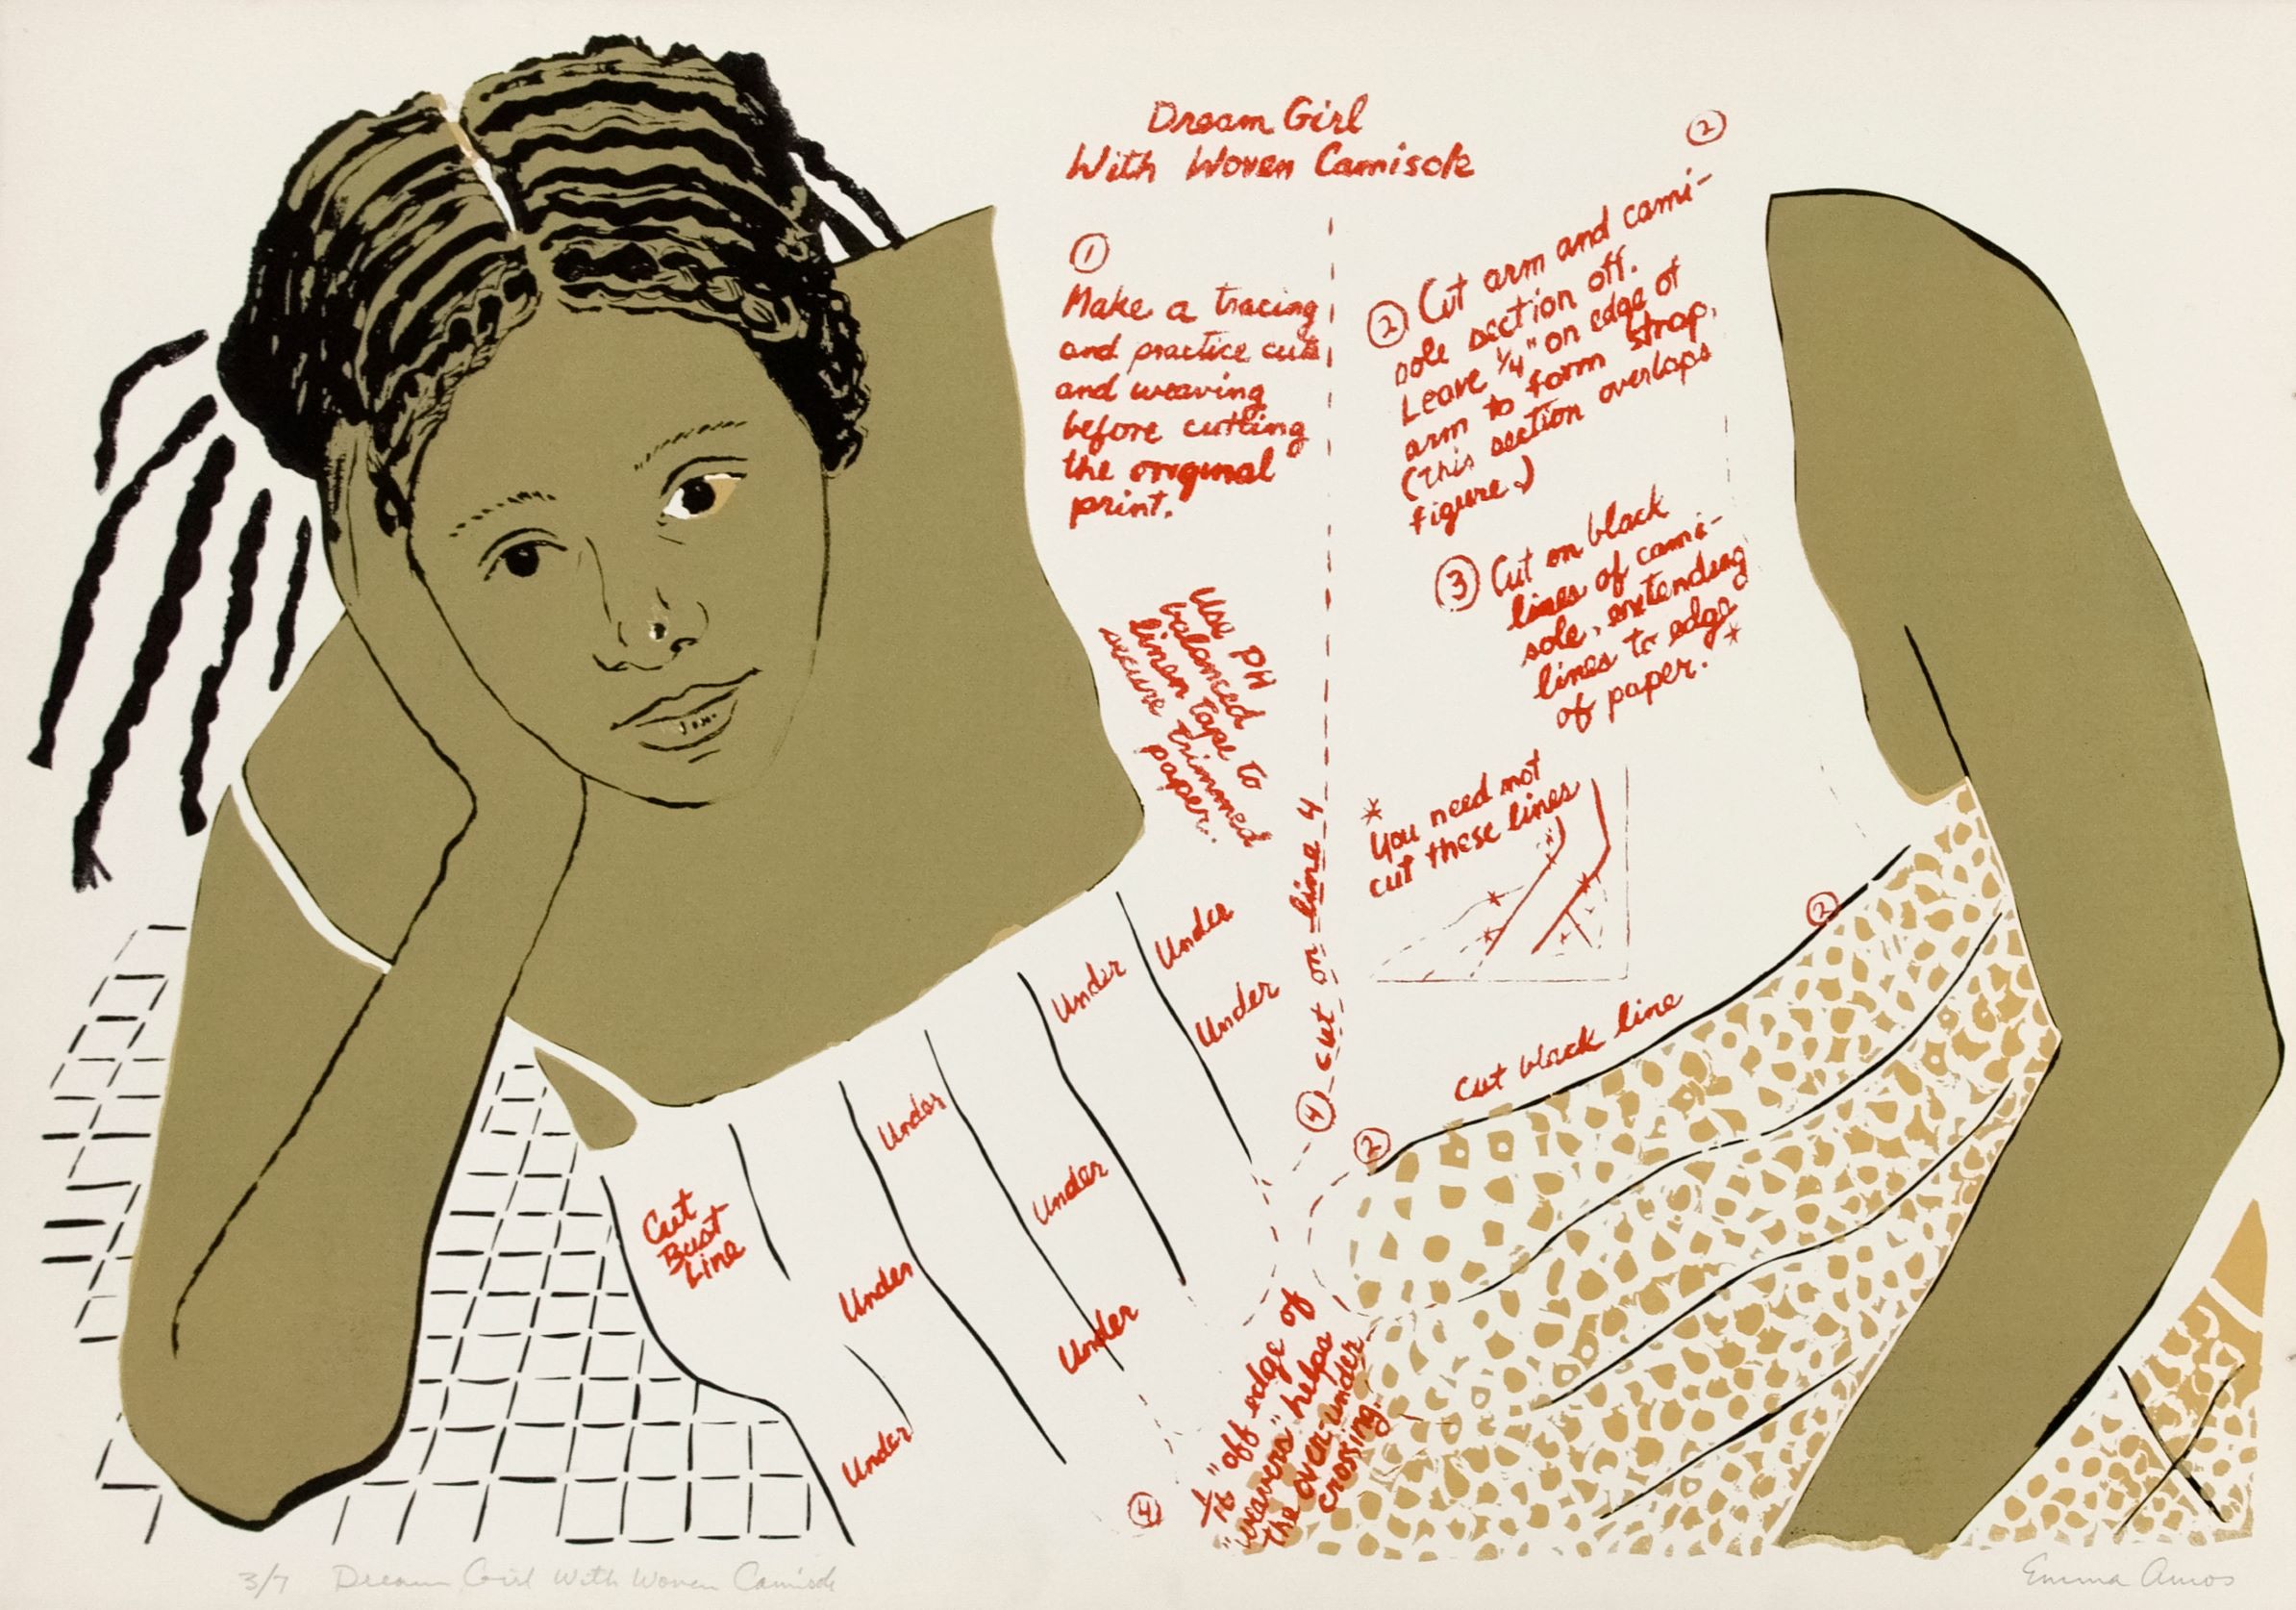 Dream Girl
With Woven Camisole
①
Make a tracing
and practice cuts
and weaving
before cutting
the original
print.
②
② Cut arm and cami-
sole section off.
Leave 1/4" on edge of
arm to form strap.
(this section overlaps
figure.)
③ Cut on black
lines of cami-
sole, extending
lines to edge
of paper.*
Use PH
balanced
linen tape to
secure trimmed
paper.
*
You need not
cut these lines
④ cut on line 4
cut black line
②
②
Under
Under
Under
Under
Under
Under
Under
Under
Cut
Bust
Line
④
1/16 "off edge of
"weavers" helps
the over-under
crossing.
3/7 Dream Girl With Woven Camisole
Emma Amos